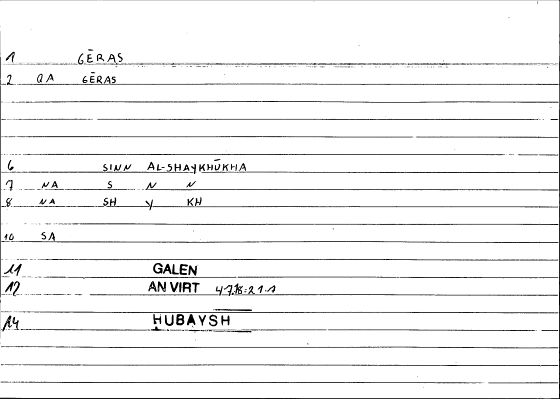 1 GĒRAS
2 QA GĒRAS
6 SINN AL-SHAYKHŪKHA
7 NA S N N
8 NA SH Y KH
10 SA
11 GALEN
12 AN VIRT
14 ḤUBAYSH